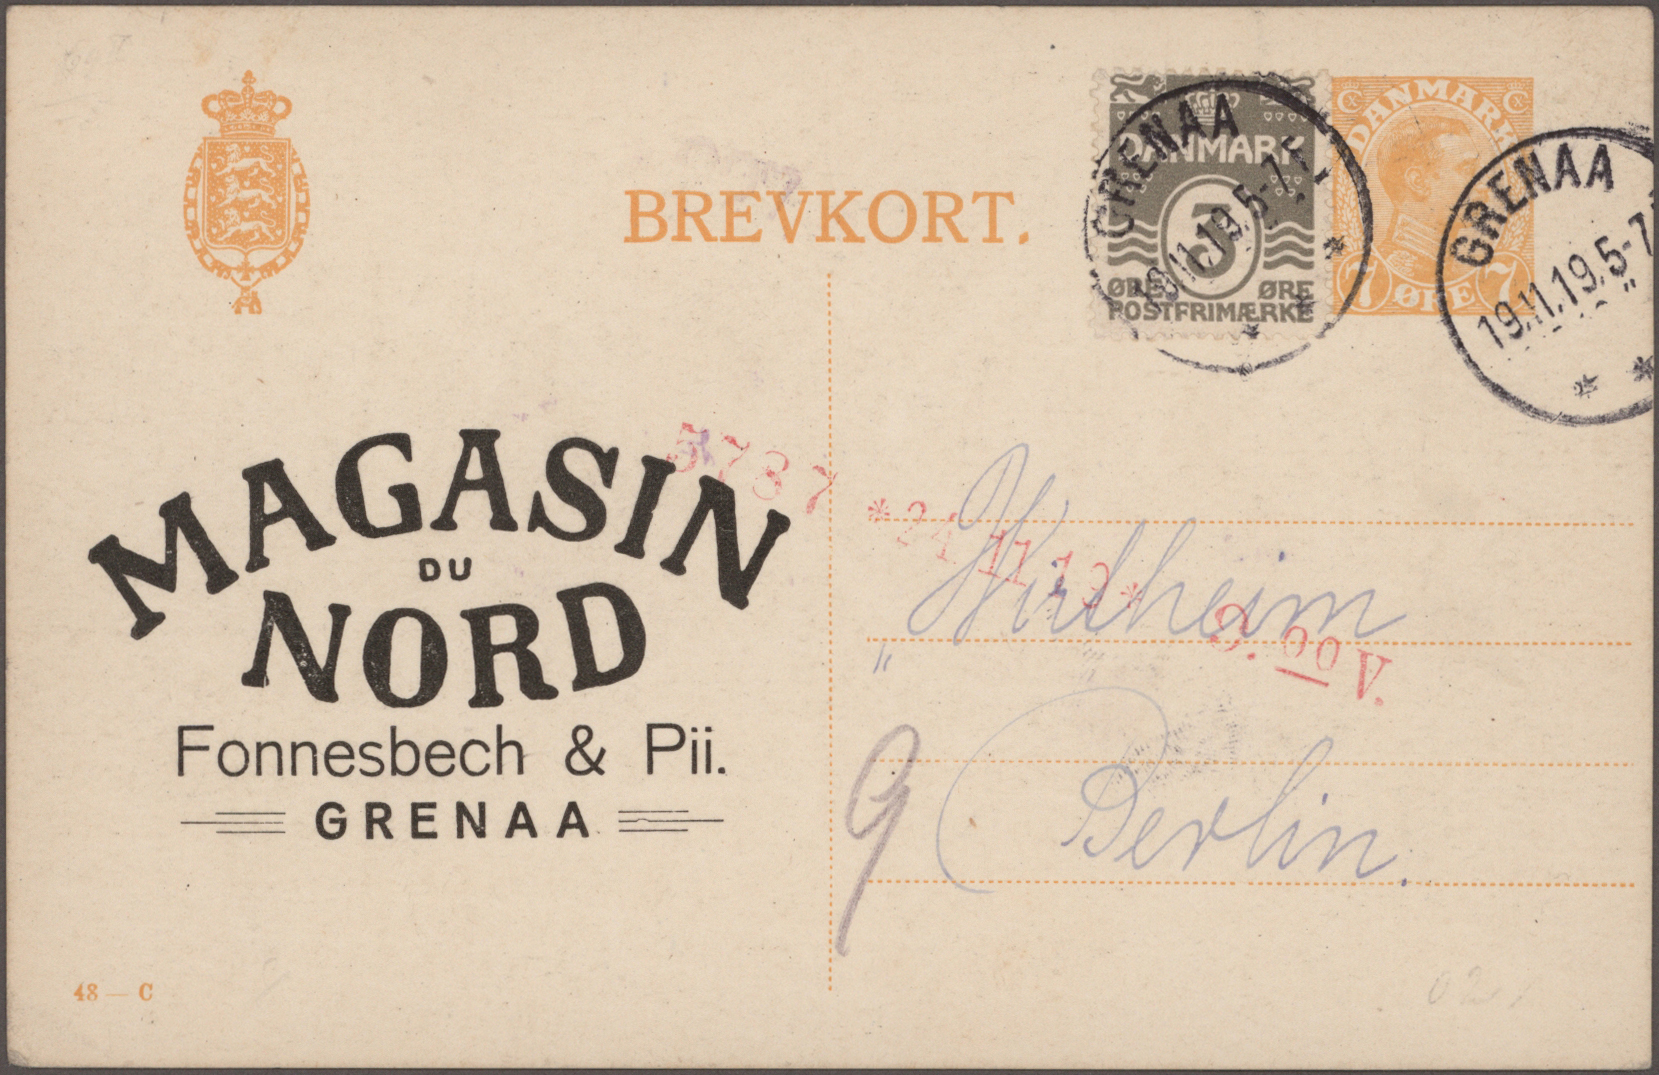 BREVKORT.
DANMARK
3
ØRE ØRE
POSTFRIMÆRKE
DANMARK
7 ØRE 7
GRENAA
19.11.19.5-7
GRENAA
19.11.19.5-7
MAGASIN
DU
NORD
Fonnesbech & Pii.
GRENAA
5787 *24 11 19* 3.00 V.
"
Berlin.
9
48 — C